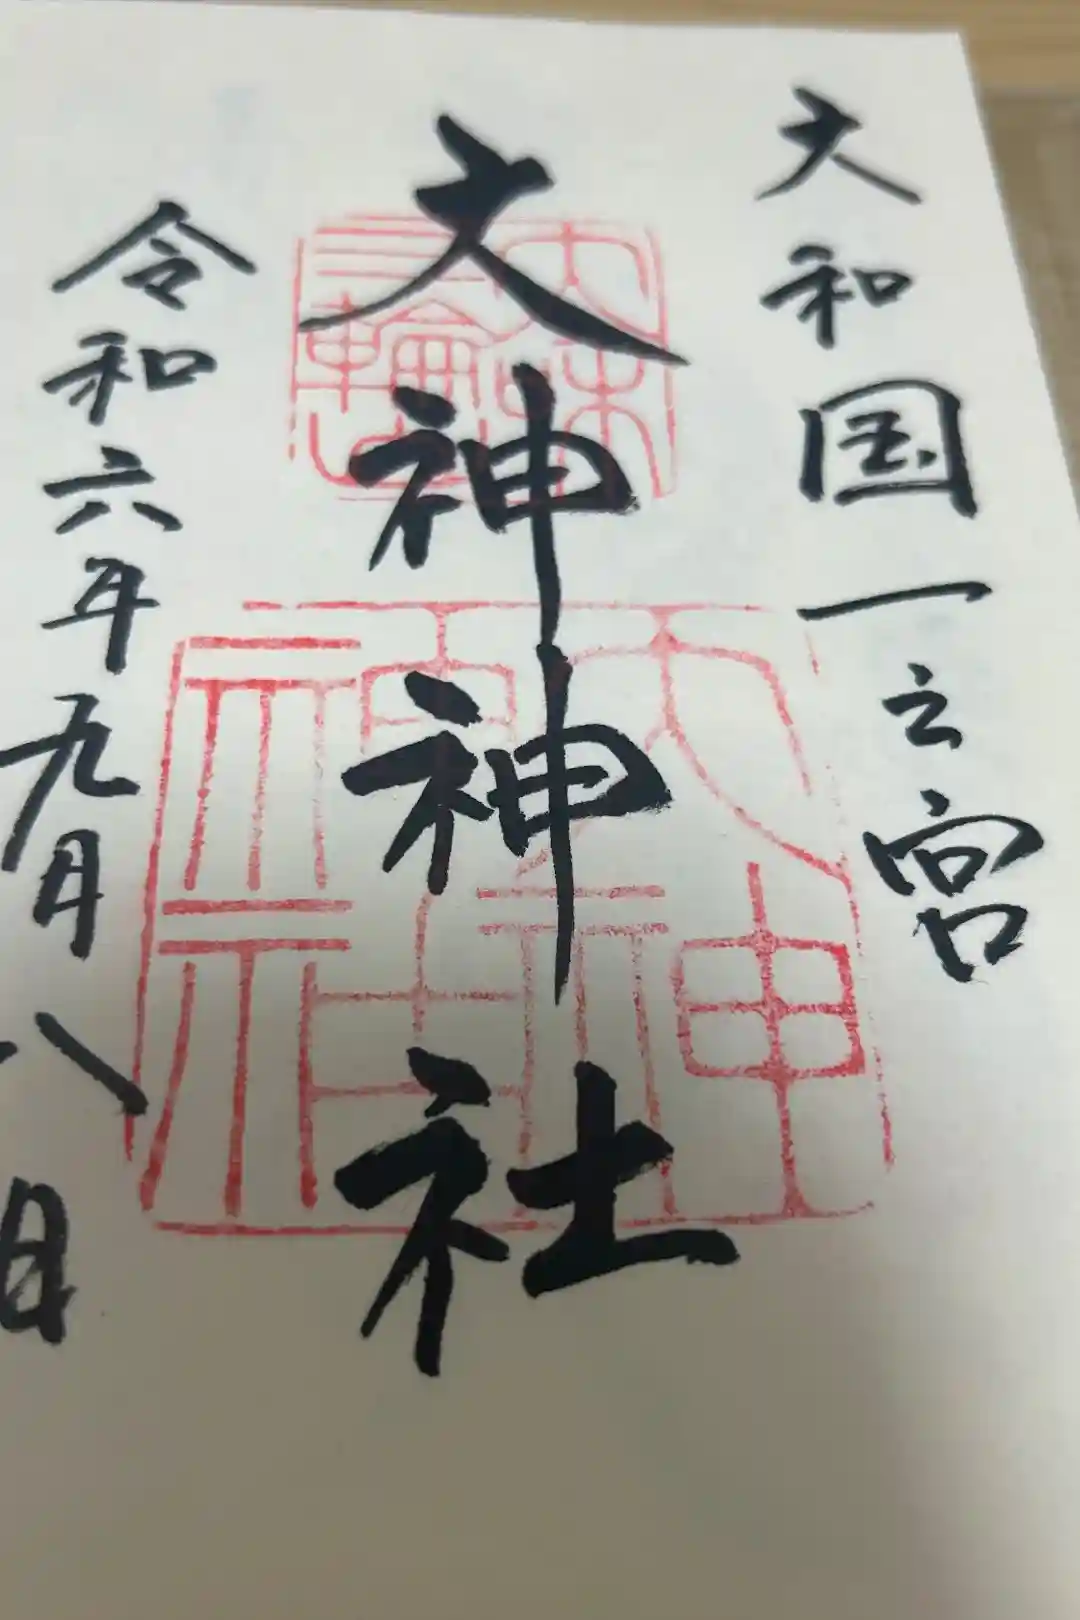 大和国一之宮
大神神社
令和六年九月八日
三輪
大神神社